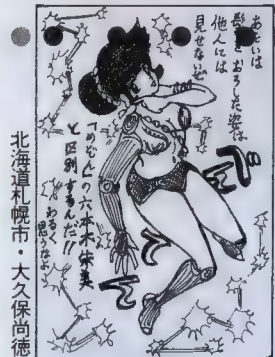 あたいは
髪をおろした姿は
他人には
見せないぜ
でん
でん
「めぞん」の六本木朱美
と区別するんだ!!
わるく
思うなよ
北海道札幌市・大久保尚徳